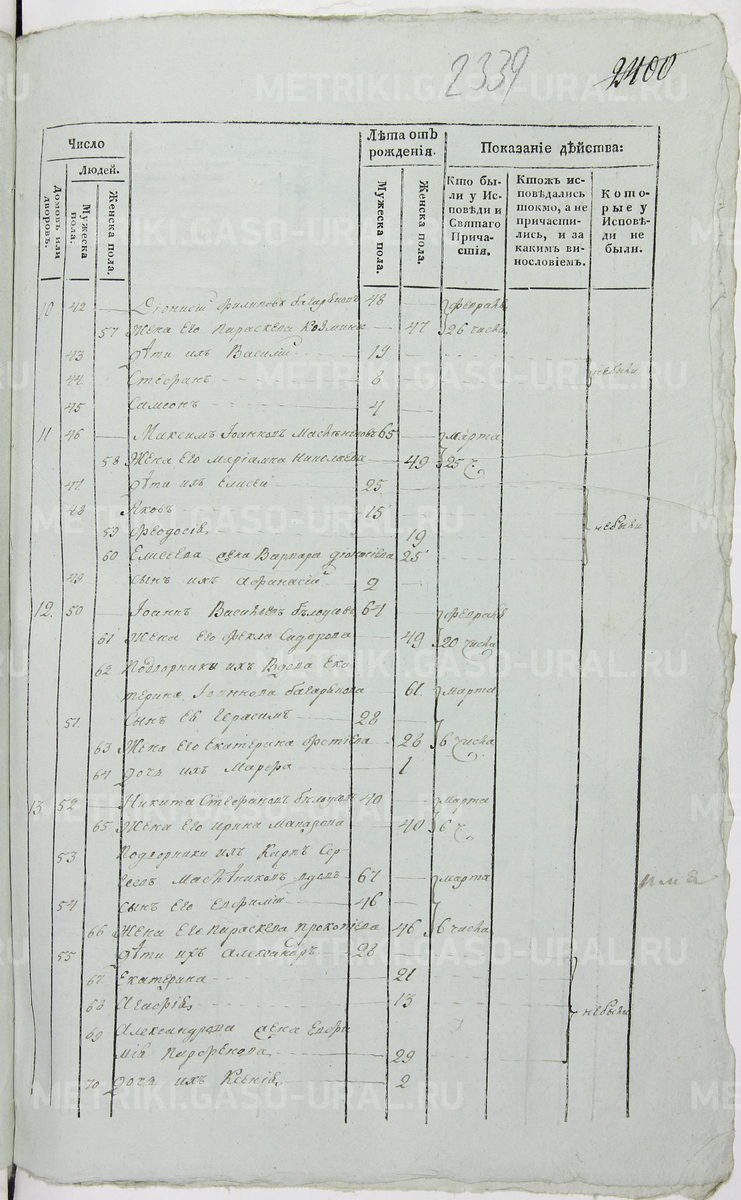 2339 2400
Число
Людей.
Домовъ или дворовъ.
Мужеска пола.
Женска пола.
Лѣта отъ рожденія.
Мужеска пола.
Женска пола.
Показаніе дѣйства:
Кто бы-
ли у Ис-
повѣди и
Святаго
Прича-
стія.
Ктожъ ис-
повѣдались
токмо, а не
причасти-
лись, и за
какимъ ви-
нословіемъ.
Кото-
рые у
Исповѣ-
ди не
были.
10 42 Дионисій Филиповъ 48 февраля
57 Жена Его Параскева Козмина 47 26 числа
43 Дѣти ихъ Василій 19
44. Стефанъ 6 небыли
45 Самсонъ 4
11 46 Максимъ Іоанновъ Масленниковъ 65 марта
58 Жена Его Маріамна Николаева 49 25 ч.
47. Дѣти ихъ Елисей 25
48 Яковъ 15
59 Феодосія 19 небыли
60 Елисеева жена Варвара 25
49 сынъ ихъ Афанасій 2
12. 50 Іоаннъ Васильевъ Бѣлоусовъ 64 февраля
61 Жена Его Фекла Сидорова 49 20 числа
62 Подворники ихъ Вдова Ека-
терина Іоаннова 61. марта
51. Сынъ Ея Герасимъ 28
63 Жена Его Екатерина 26 6 числа
64 дочь ихъ Марфа 1
13 52 Никита Стефановъ Бѣлоусовъ 40 марта
65 Жена Его Ирина Макарова 40 6 ч.
53 Подворники ихъ Карпъ Сер-
геевъ Масленниковъ вдовъ 67 марта
54 сынъ Его Евфимій 46
66 Жена Его Параскева Прокопіева 46 6 числа
55 Дѣти ихъ Александръ 28
67 Екатерина 21
68 13 небыли
69 Александрова жена Евфи-
мія Парфенова 29
70 дочь ихъ Ксенія 2
METRIKI.GASO-URAL.RU